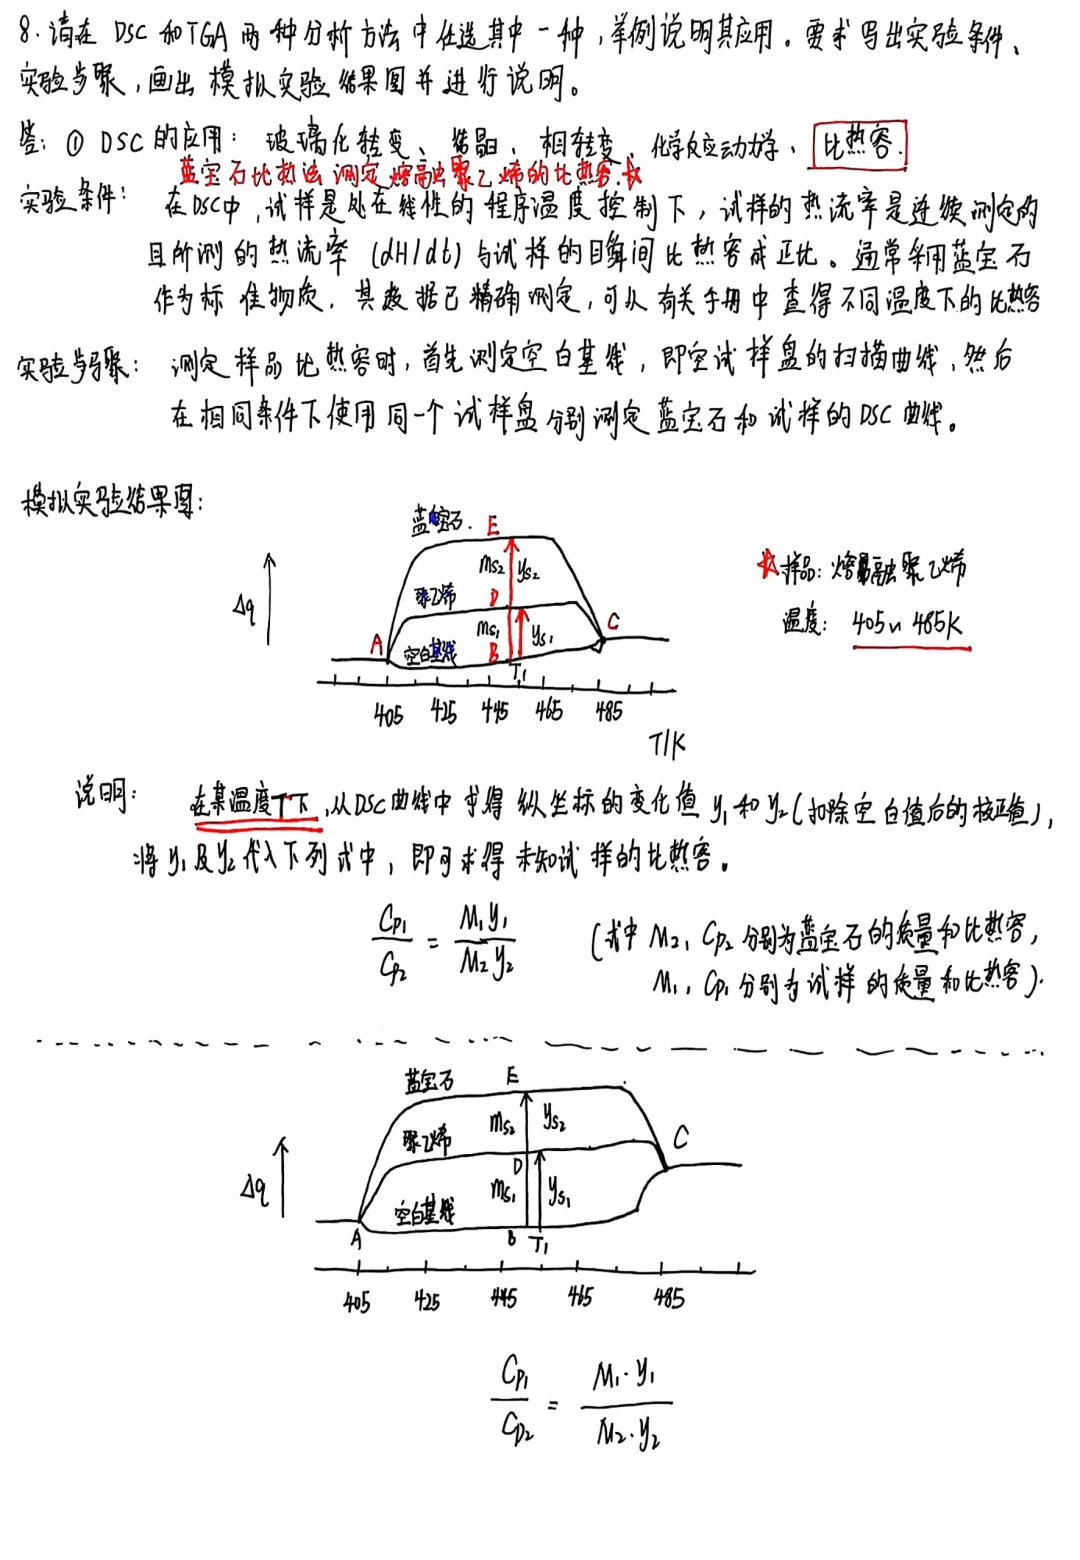 8. 请在 DSC 和TGA 两种分析方法中任选其中一种，举例说明其应用。要求写出实验条件、
实验步聚，画出模拟实验结果图并进行说明。
答: ① DSC 的应用: 玻璃化转变、结晶、相转变、化学反应动力学、比热容.
蓝宝石比热法测定熔融聚乙烯的比热容.☆
实验条件: 在DSC中，试样是处在线性的程序温度控制下，试样的热流率是连续测定的
且所测的热流率 (dH/dt) 与试样的瞬间比热容成正比。通常采用蓝宝石
作为标准物质，其数据已精确测定，可从有关手册中查得不同温度下的比热容
实验步骤: 测定样品比热容时，首先测定空白基线，即空试样盘的扫描曲线，然后
在相同条件下使用同一个试样盘分别测定蓝宝石和试样的DSC曲线。
模拟实验结果图:
蓝宝石. E
mS2 yS2
☆样品: 熔融聚乙烯
Δq
聚乙烯 D
温度: 405~485K
A mS1 yS1 C
空白基线 B
T1
405 425 445 465 485
T/K
说明: 在某温度T下，从DSC曲线中求得纵坐标的变化值 y1 和 y2 (扣除空白值后的校正值),
将 y1 及 y2 代入下列式中，即可求得未知试样的比热容。
Cp1/Cp2 = M1y1/M2y2 (式中 M2, Cp2 分别为蓝宝石的质量和比热容,
M1, Cp1 分别为试样的质量和比热容).
蓝宝石 E
mS2 yS2
聚乙烯 C
Δq D
mS1 yS1
空白基线
A B T1
405 425 445 465 485
Cp1/Cp2 = M1·y1/M2·y2